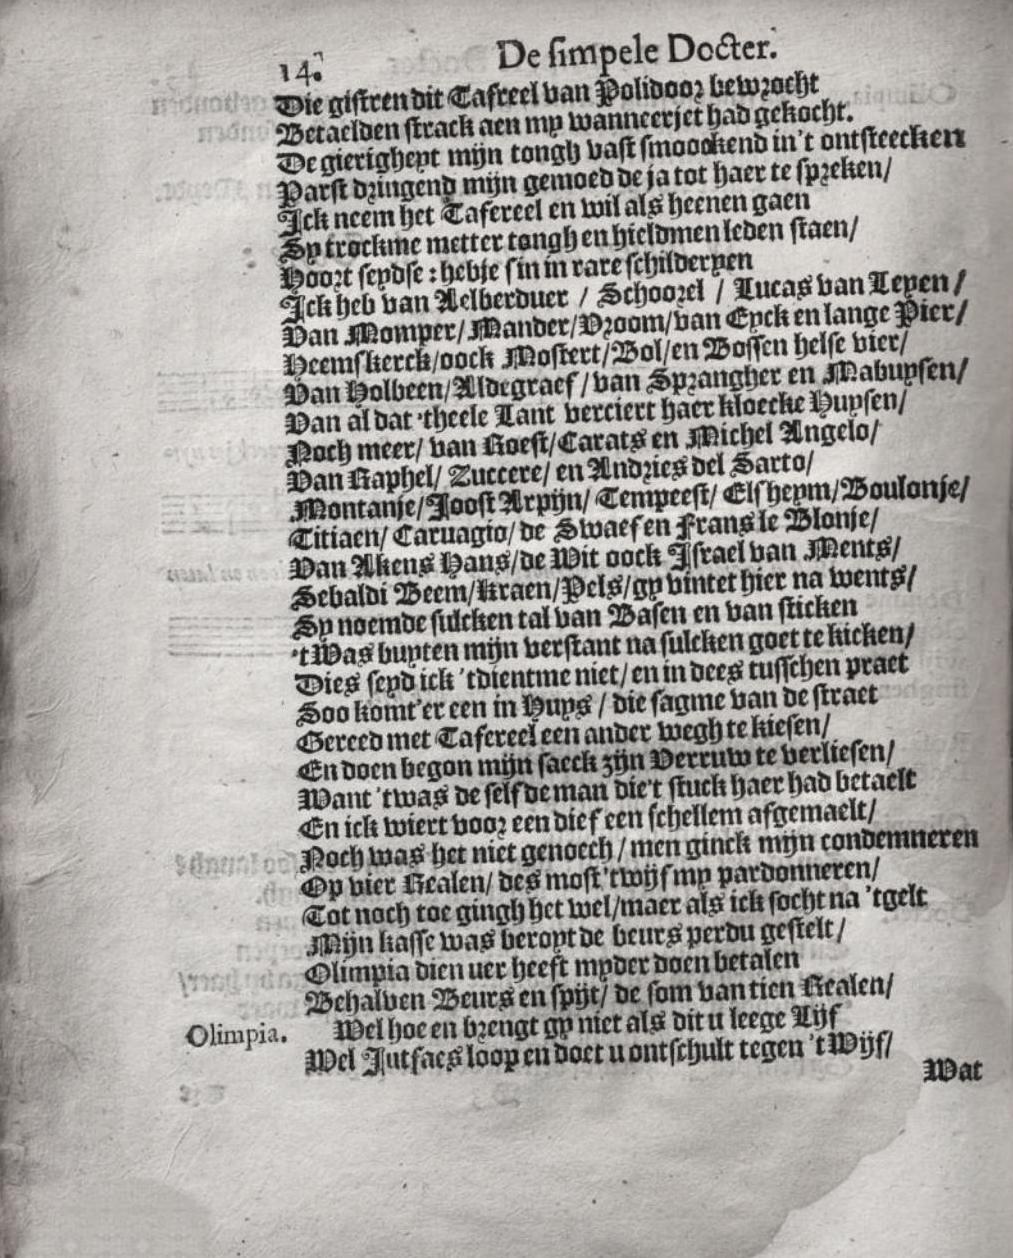 14.
De simpele Docter.
Die gistren dit Tafreel van Polidoor bewrocht
Betaelden strack aen my wanneerjet had gekocht.
De gierigheyt mijn tongh vast smoockend in't ontsteecken
Parst dringend mijn gemoed de ja tot haer te spreken/
Ick neem het Tafereel en wil als heenen gaen
Sy trockme metter tongh en hieldmen leden staen/
Hoort seydse: hebje sin in rare schilderyen
Ick heb van Aelberduer / Schoorel / Lucas van Leyen /
Van Momper/ Mander/ Vroom/ van Eyck en lange Pier/
Heemskerck/ oock Mostert/ Bol/ en Bossen helse vier/
Van Holbeen/ Aldegraef/ van Sprangher en Mabuysen/
Van al dat 'theele Lant verciert haer kloecke Huysen/
Noch meer/ van Roest/ Carats en Michel Angelo/
Van Raphel/ Zuccere/ en Andries del Sarto/
Montanje/ Joost Arpijn/ Tempeest/ Elsheym/ Boulonje/
Titiaen/ Caruagio/ de Swaef en Frans le Blonje/
Van Akens Hans/ de Wit oock Israel van Ments/
Sebaldi Beem/ Kraen/ Pels/ gy vintet hier na wents/
Sy noemde sulcken tal van Basen en van sticken
't Was buyten mijn verstant na sulcken goet te kicken/
Dies seyd ick 'tdientme niet/ en in dees tusschen praet
Soo komt'er een in Huys / die sagme van de straet
Gereed met Tafereel een ander wegh te kiesen/
En doen begon mijn saeck zijn Verruw te verliesen/
Want 'twas de selfde man die't stuck haer had betaelt
En ick wiert voor een dief een schellem afgemaelt/
Noch was het niet genoech / men ginck mijn condemneren
Op vier Realen/ des most 'twijf my pardonneren/
Tot noch toe gingh het wel/ maer als ick socht na 'tgelt
Mijn kasse was beroyt de beurs perdu gestelt/
Olimpia dien uer heeft myder doen betalen
Behalven Beurs en spijt/ de som van tien Realen/
Olimpia. Wel hoe en brengt gy niet als dit u leege Lijf
Wel Jutfaes loop en doet u ontschult tegen 't Wijf/
Wat